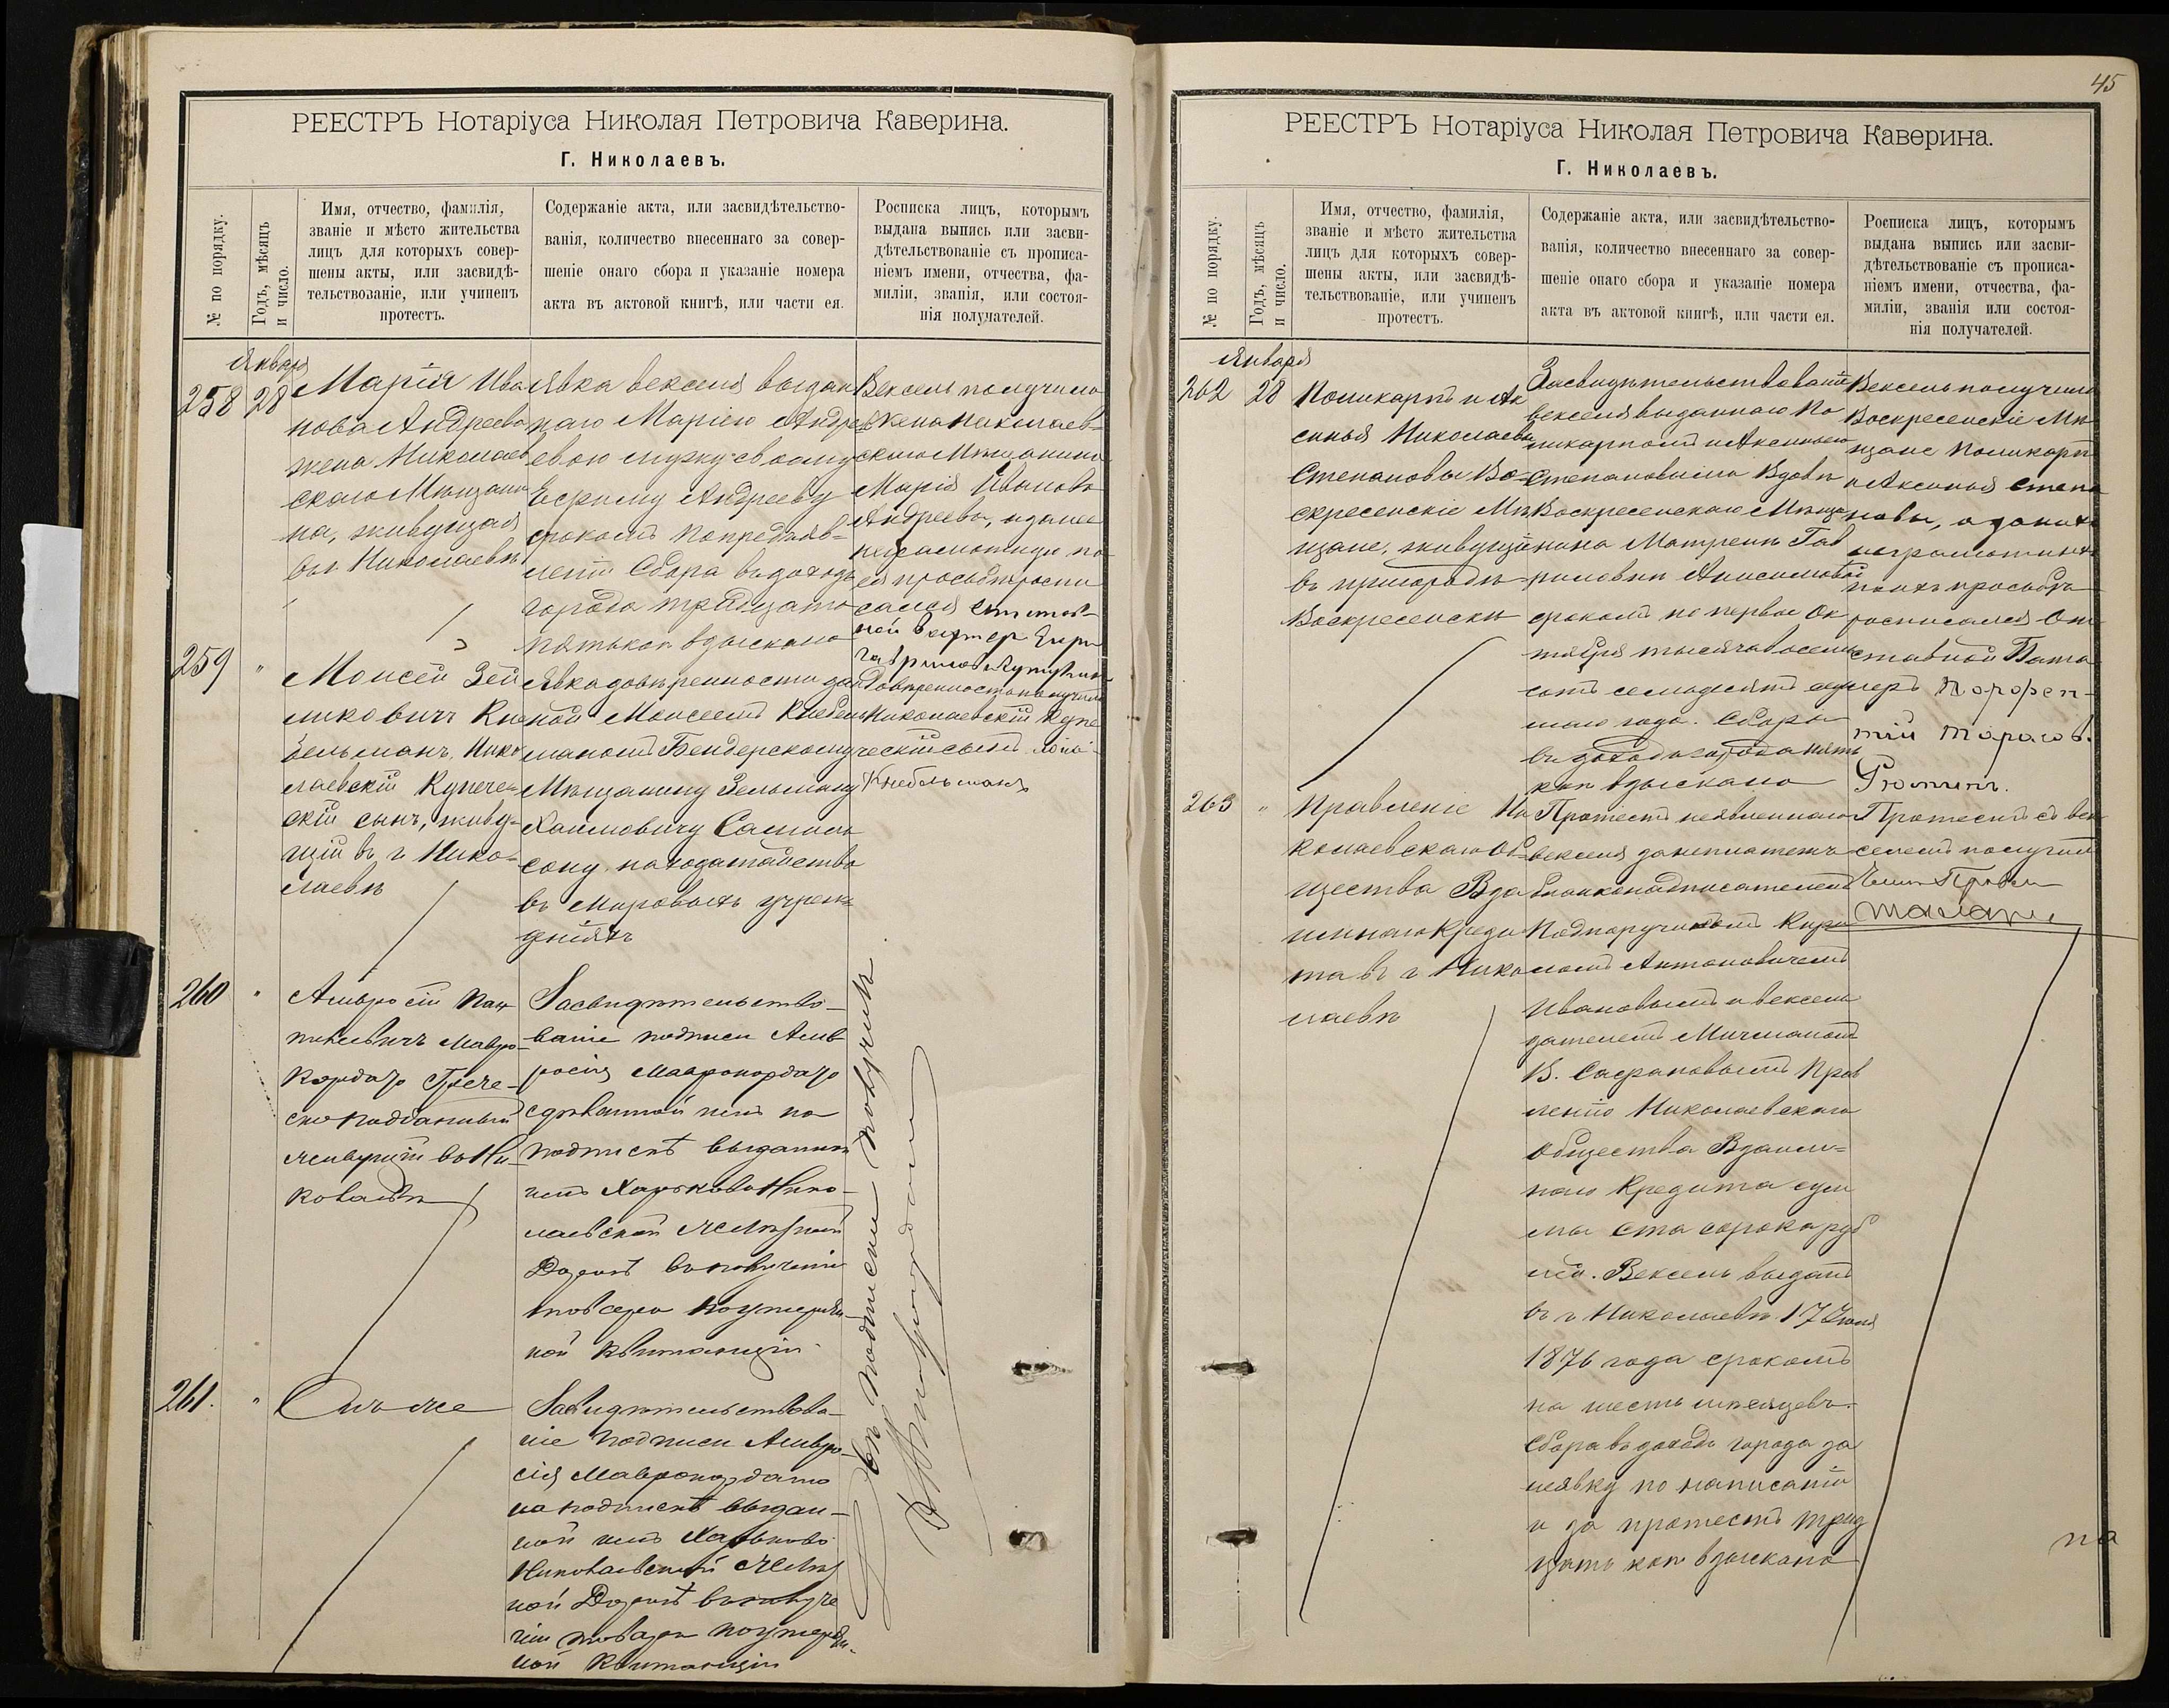 РЕЕСТРЪ Нотаріуса Николая Петровича Каверина.
Г. Николаевъ.
№ по порядку.
Годъ, мѣсяцъ
и число.
Имя, отчество, фамилія,
званіе и мѣсто жительства
лицъ для которыхъ совер-
шены акты, или засвидѣ-
тельствованіе, или учиненъ
протестъ.
Содержаніе акта, или засвидѣтельство-
ванія, количество внесеннаго за совер-
шеніе онаго сбора и указаніе номера
акта въ актовой книгѣ, или части ея.
Росписка лицъ, которымъ
выдана выпись или засви-
дѣтельствованіе съ прописа-
ніемъ имени, отчества, фа-
миліи, званія, или состоя-
нія получателей.
Января
258 28
Марія Ива
нова Андреева
жена Николаев
скаго Мѣщани
на, живущая
въ г. Николаевѣ
Явка векселя выдан
наго Маріею Андре
евою мужу своему
Андрееву
срокомъ по предъяв-
леніи Сбора въ доходъ
города тридцать
пять коп взыскано
Вексель получила
жена Николаев-
скаго Мѣщанина
Марія Иванова
Андреева, а за нее
неграмотную по
ея просьбѣ роспи
сался
259 "
Моисей Зей
ликовичъ Кне
бельманъ, Нико
лаевскій Купече
скій сынъ, живу-
щій въ г Нико-
лаевѣ
Явка довѣренности дан
ной Моисеемъ Кнебель
маномъ Бендерскому
Мѣщанину Зельману
Хаимовичу Самиль
сону на ходатайство
въ Мировыхъ учреж
деніяхъ
Довѣренность получилъ
Николаевскій Купе
ческій сынъ
Кнебельманъ
260 "
Амвросій Пан
телѣевичъ Мавро-
кордато Грече-
ско подданный
живущій въ Ни-
колаевѣ
Засвидѣтельство-
ваніе подписи Амв
росія Маврокордато
сдѣланной имъ на
подпискѣ выданной
имъ Харьково Нико-
лаевской Желѣзной
Дорогѣ въ полученіи
товара по утерян
ной квитанціи.
261. "
Онъ же
Засвидѣтельствова-
ніе подписи Амвро-
сія Маврокордато
на подпискѣ выдан-
ной имъ Харьково
Николаевской Желѣз
ной Дорогѣ въ получе
ніи товара по утерян-
ной квитанціи
Двѣ подписки получилъ
АМаврокордато
45
РЕЕСТРЪ Нотаріуса Николая Петровича Каверина.
Г. Николаевъ.
№ по порядку.
Годъ, мѣсяцъ
и число.
Имя, отчество, фамилія,
званіе и мѣсто жительства
лицъ для которыхъ совер-
шены акты, или засвидѣ-
тельствованіе, или учиненъ
протестъ.
Содержаніе акта, или засвидѣтельство-
ванія, количество внесеннаго за совер-
шеніе онаго сбора и указаніе номера
акта въ актовой книгѣ, или части ея.
Росписка лицъ, которымъ
выдана выпись или засви-
дѣтельствованіе съ прописа-
ніемъ имени, отчества, фа-
миліи, званія или состоя-
нія получателей.
Января
262 28
Поликарпъ и Ак
синья Николаевы
Степановы Во-
скресенскіе Мѣ
щане, живущіе
въ пригородѣ
Воскресенскѣ
Засвидѣтельствованіе
векселя выданнаго По
ликарпомъ и Аксиньею
Степановыми Вдовѣ
Воскресенскаго Мѣща
нина Матренѣ Гав
риловнѣ Анисимовой
срокомъ по первое Ок
тября тысяча восемь
сотъ семьдесятъ седь
маго года. Сбора
въ доходъ города пять
коп взыскано
Вексель получили
Воскресенскіе Мѣ
щане Поликарпъ
и Аксинья Степа
новы, а за нихъ
неграмотныхъ
по ихъ просьбѣ
росписался От
ставной
Тарасов.
263 "
Правленіе Ни
колаевскаго Об-
щества Вза
имнаго Креди
та въ г Нико
лаевѣ
Протестъ неявленнаго
векселя за неплатежъ
бланконадписателемъ
Подпоручикомъ Кири
ломъ Антоновичемъ
Ивановымъ и вексел
дателемъ Мичманомъ
В. Сафановымъ Прав
ленію Николаевскаго
Общества Взаим-
наго Кредита сум
мы Ста сорока руб
лей. Вексель выданъ
въ г Николаевѣ 17 Іюня
1876 года срокомъ
на шесть мѣсяцевъ.
Сбора въ доходъ города за
неявку по написаніи
и за протестъ трид
цать коп взыскано
Протестъ съ век
селемъ получилъ
на